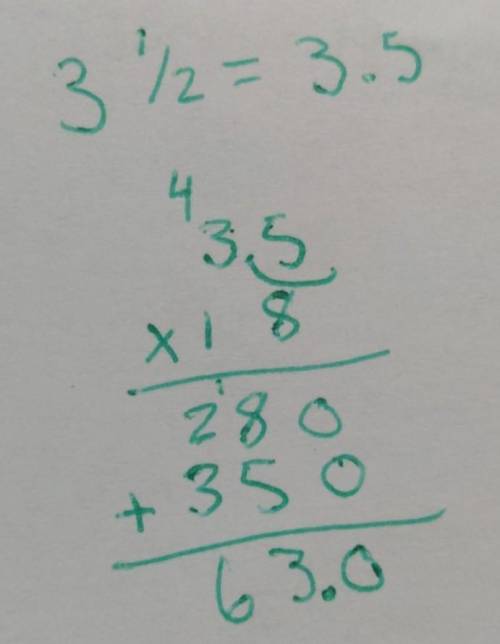 3 1/2 = 3.5
4
3.5
x 1 8
1
280
+ 350
63.0